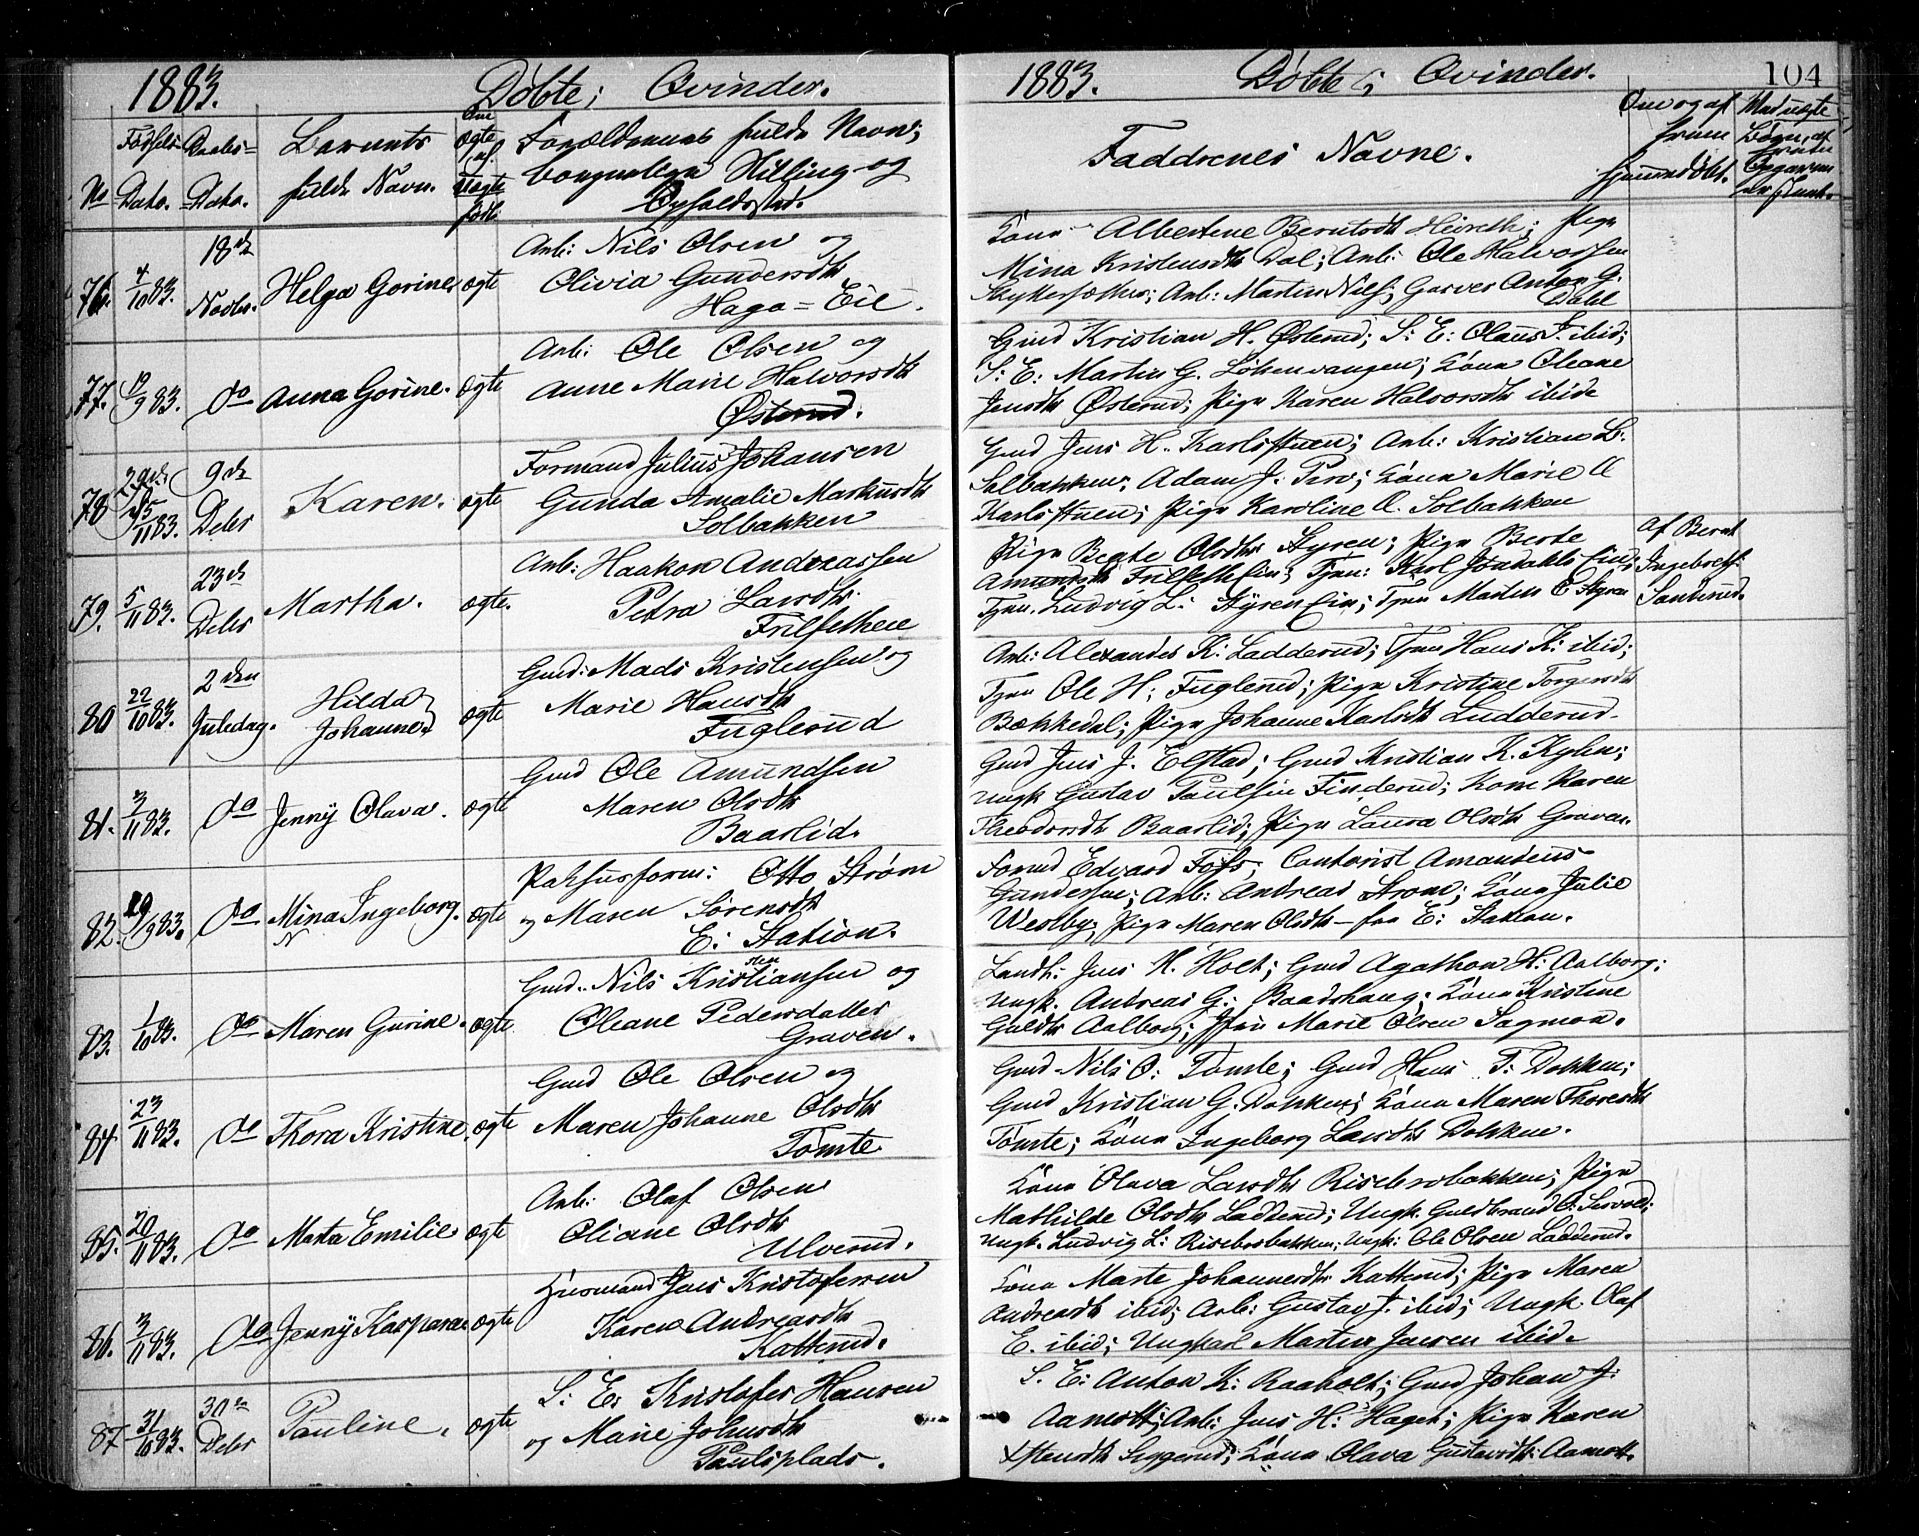 1883. Døbte; Qvinder.
No Fødsels-Dato. Daabs-Dato. Barnets fulde Navn. Om ægte el. uægte født. Forældrenes fulde Navn; borgerlige Stilling og Opholdssted.
76. 4/10 83. 18de Novbr. Helga Gorine. ægte Arb: Nils Olsen og
Olivia Gundersdtr
Haga=Eie.
77. 19/9 83. Do Anna Gorine. ægte Arb: Ole Olsen og
Anne Marie Halvorsdtr
Østerud.
78 11 83. 9de Debr Karen. ægte Formand Julius Johansen
Gunda Amalie Markusdtr
Solbakken
79. 5/11 83. 23de Debr Martha. ægte. Arb: Haakon Andreassen
Petra Larsdtr.
Frilsetheie
80 22/10 83. 2den Juledag. Hilda Johanne ægte Gmd: Mads Kristensen og
Marie Hansdtr
Fuglerud
81. 3/11 83. Do Jenny Olava. ægte Gmd Ole Amundsen
Maren Olsdtr
Baarlid.
82. 9 83. Do Mina Ingeborg. ægte Pakhusform: Otto Strøm
og Maren Sørensdtr
E: Station.
83. 1/10 83. Do Maren Gurine. ægte Gmd. Nils Kristiansen og
Oliane Pedersdatter
Graven.
84. 23/11 83. Do Thora Kristine. ægte Gmd Ole Olsen og
Maren Johanne Olsdtr
Tømte
85. 20/11 83. Do Marta Emilie ægte Arb: Olaf Olsen
Oliane Olsdtr
Ulverud.
86. 3/11 83. Do Jenny Kaspara ægte Huusmand Jens Kristofersen
Karen Andreasdtr
Katterud.
87 31/10 83. 30te Debr Pauline. ægte S: E: Kristofer Hansen
og Marie Johnsdtr
Paulsplads.
1883. Døbte; Qvinder. 104
Faddrenes Navne.
Kone Albertine Berntsdtr; Pige
Mina Kristensdtr Dal; Arb: Ole Halvorsen
Arb: Martin Nils; Garver Anton G. Dahl
Gmd Kristian H. Østerud; S: E: Olaus J. ibid;
S: E: Martin G. Løkenvangen; Kone Oleane
Jensdtr Østerud; Pige Karen Halvorsdtr ibid.
Gmd Jens H. Karlsstuen; Arb: Kristian L:
Solbakken; Adam J. Kone Marie A
Karlsstuen; Pige Karoline A. Solbakken
Pige Berte Olsdtr Styren; Pige Berte
Amundsdtr Frilseth Ein; Tjen: Karl Eie;
Tjen. Ludvig L: Styren Ein; Tjen Martin E Styren
Af Bernt
Ingebretss.
Arb: Alexander K: Ladderud; Tjen Hans K: ibid;
Tjen Ole H: Fuglerud; Pige Kristine Torgersdtr
Bækkedal; Pige Johanne Karlsdtr Ludderud.
Gmd Jens J. Elstad; Gmd Kristian K. Kylen;
Ungk Gustav Paulsen Finderud; Kone Karen
Theodorsdtr Baarlid; Pige Laura Olsdtr Graven.
Formd Edvard Foss; Contorist Amandus
Gundersen; Arb: Andreas Strøm; Kone Julie
Westby; Pige Maren Olsdtr - fra E: Station.
Landh: Jens H. Holt; Gmd Agathon H: Aalborg;
Ungk. Andreas G: Baadshaug; Kone Kristine
Guldsdtr Aalborg; Marie Olsen Sagmoen.
Gmd Nils O: Tømte; Gmd Hans T: Dokken;
Gmd Kristian G. Dokken; Kone Maren Thoresdtr
Tømte; Kone Ingeborg Larsdtr Dokken.
Kone Olava Larsdtr Risebrobakken; Pige
Mathilde Olsdtr Ladderud; Ungk. Guldbrand O:
Ungk. Ludvig L: Risebrobakken; Ungk: Ole Olsen Ladderud.
Kone Marte Johannesdtr Katterud; Pige Maren
Andreasdtr ibid; Arb: Gustav J. ibid; Ungk. Olaf
E. ibid; Ungkarl Martin Jensen ibid.
S. E: Anton K: Raaholt; Gmd Johan J:
Aamott; Arb: Jens H: Haget; Pige Karen
Kone Olava Gustavsdtr Aamott.